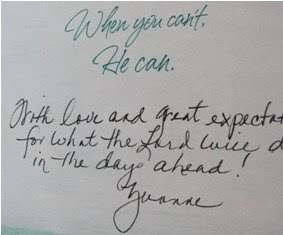 When you can't,
He can.
With love and great expectat
for what the Lord wice d
in the days ahead!
Yvonne